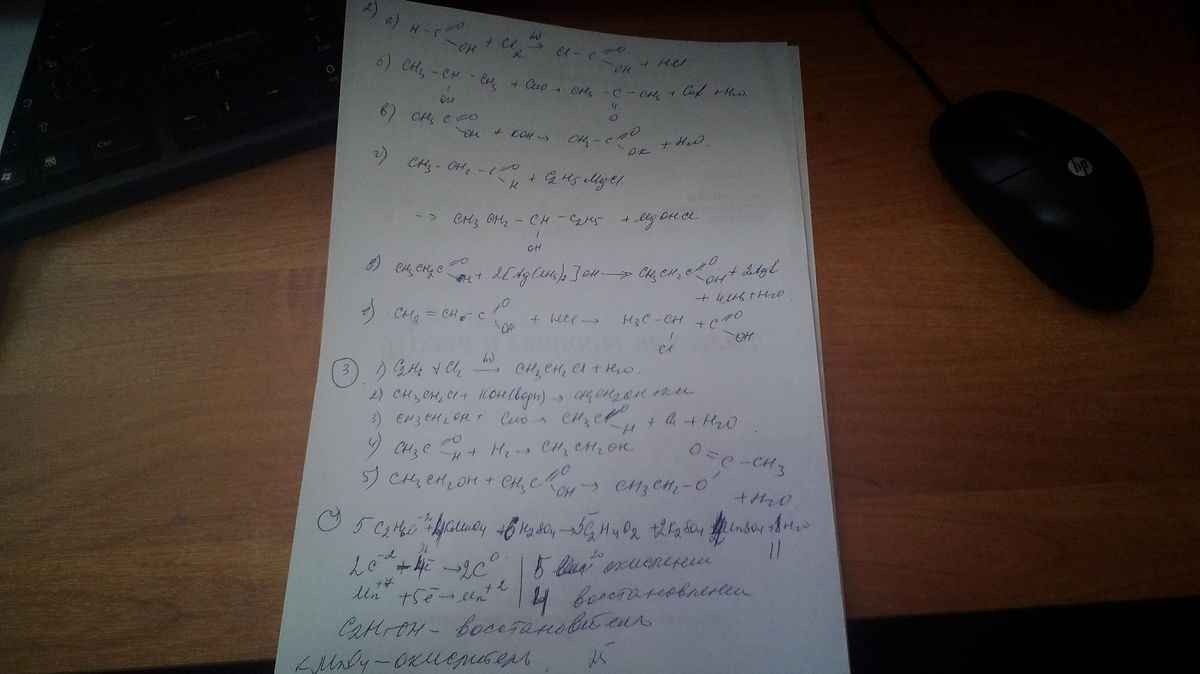 2) а) H–C(=O)–OH + Cl2 →(hν) Cl–C(=O)–OH + HCl
б) CH3–CH(OH)–CH3 + CuO → CH3–C(=O)–CH3 + Cu↓ + H2O
в) CH3C(=O)–OH + KOH → CH3–C(=O)–OK + H2O.
г) CH3–CH2–C(=O)–H + C2H5MgCl
→ CH3CH2–CH(OH)–C2H5 + MgOHCl
CH3CH2C(=O)–OH + 2[Ag(NH3)2]OH → CH3CH2C(=O)–OH + 2Ag↓
+ 4NH3 + H2O.
CH2=CH–C(=O)–OH + HCl → H3C–CH(Cl) + C(=O)–OH.
3 1) C2H6 + Cl2 →(hν) CH3CH2Cl + H2O.
2) CH3CH2Cl + KOH(водн) → CH3CH2OH + KCl
3) CH3CH2OH + CuO → CH3C(=O)–H + Cu + H2O.
4) CH3C(=O)–H + H2 → CH3CH2OH
5) CH3CH2OH + CH3C(=O)–OH → CH3CH2–O–C(=O)–CH3
+ H2O
5C2H6O + 4KMnO4 + 6H2SO4 → 5C2H4O2 + 2K2SO4 + 4MnSO4 + 11H2O
2C-2 – 4e → 2C0 | 5 окисления
Mn+7 + 5e → Mn+2 | 4 восстановления
C2H5OH – восстановитель
KMnO4 – окислитель.
hp
Ctrl